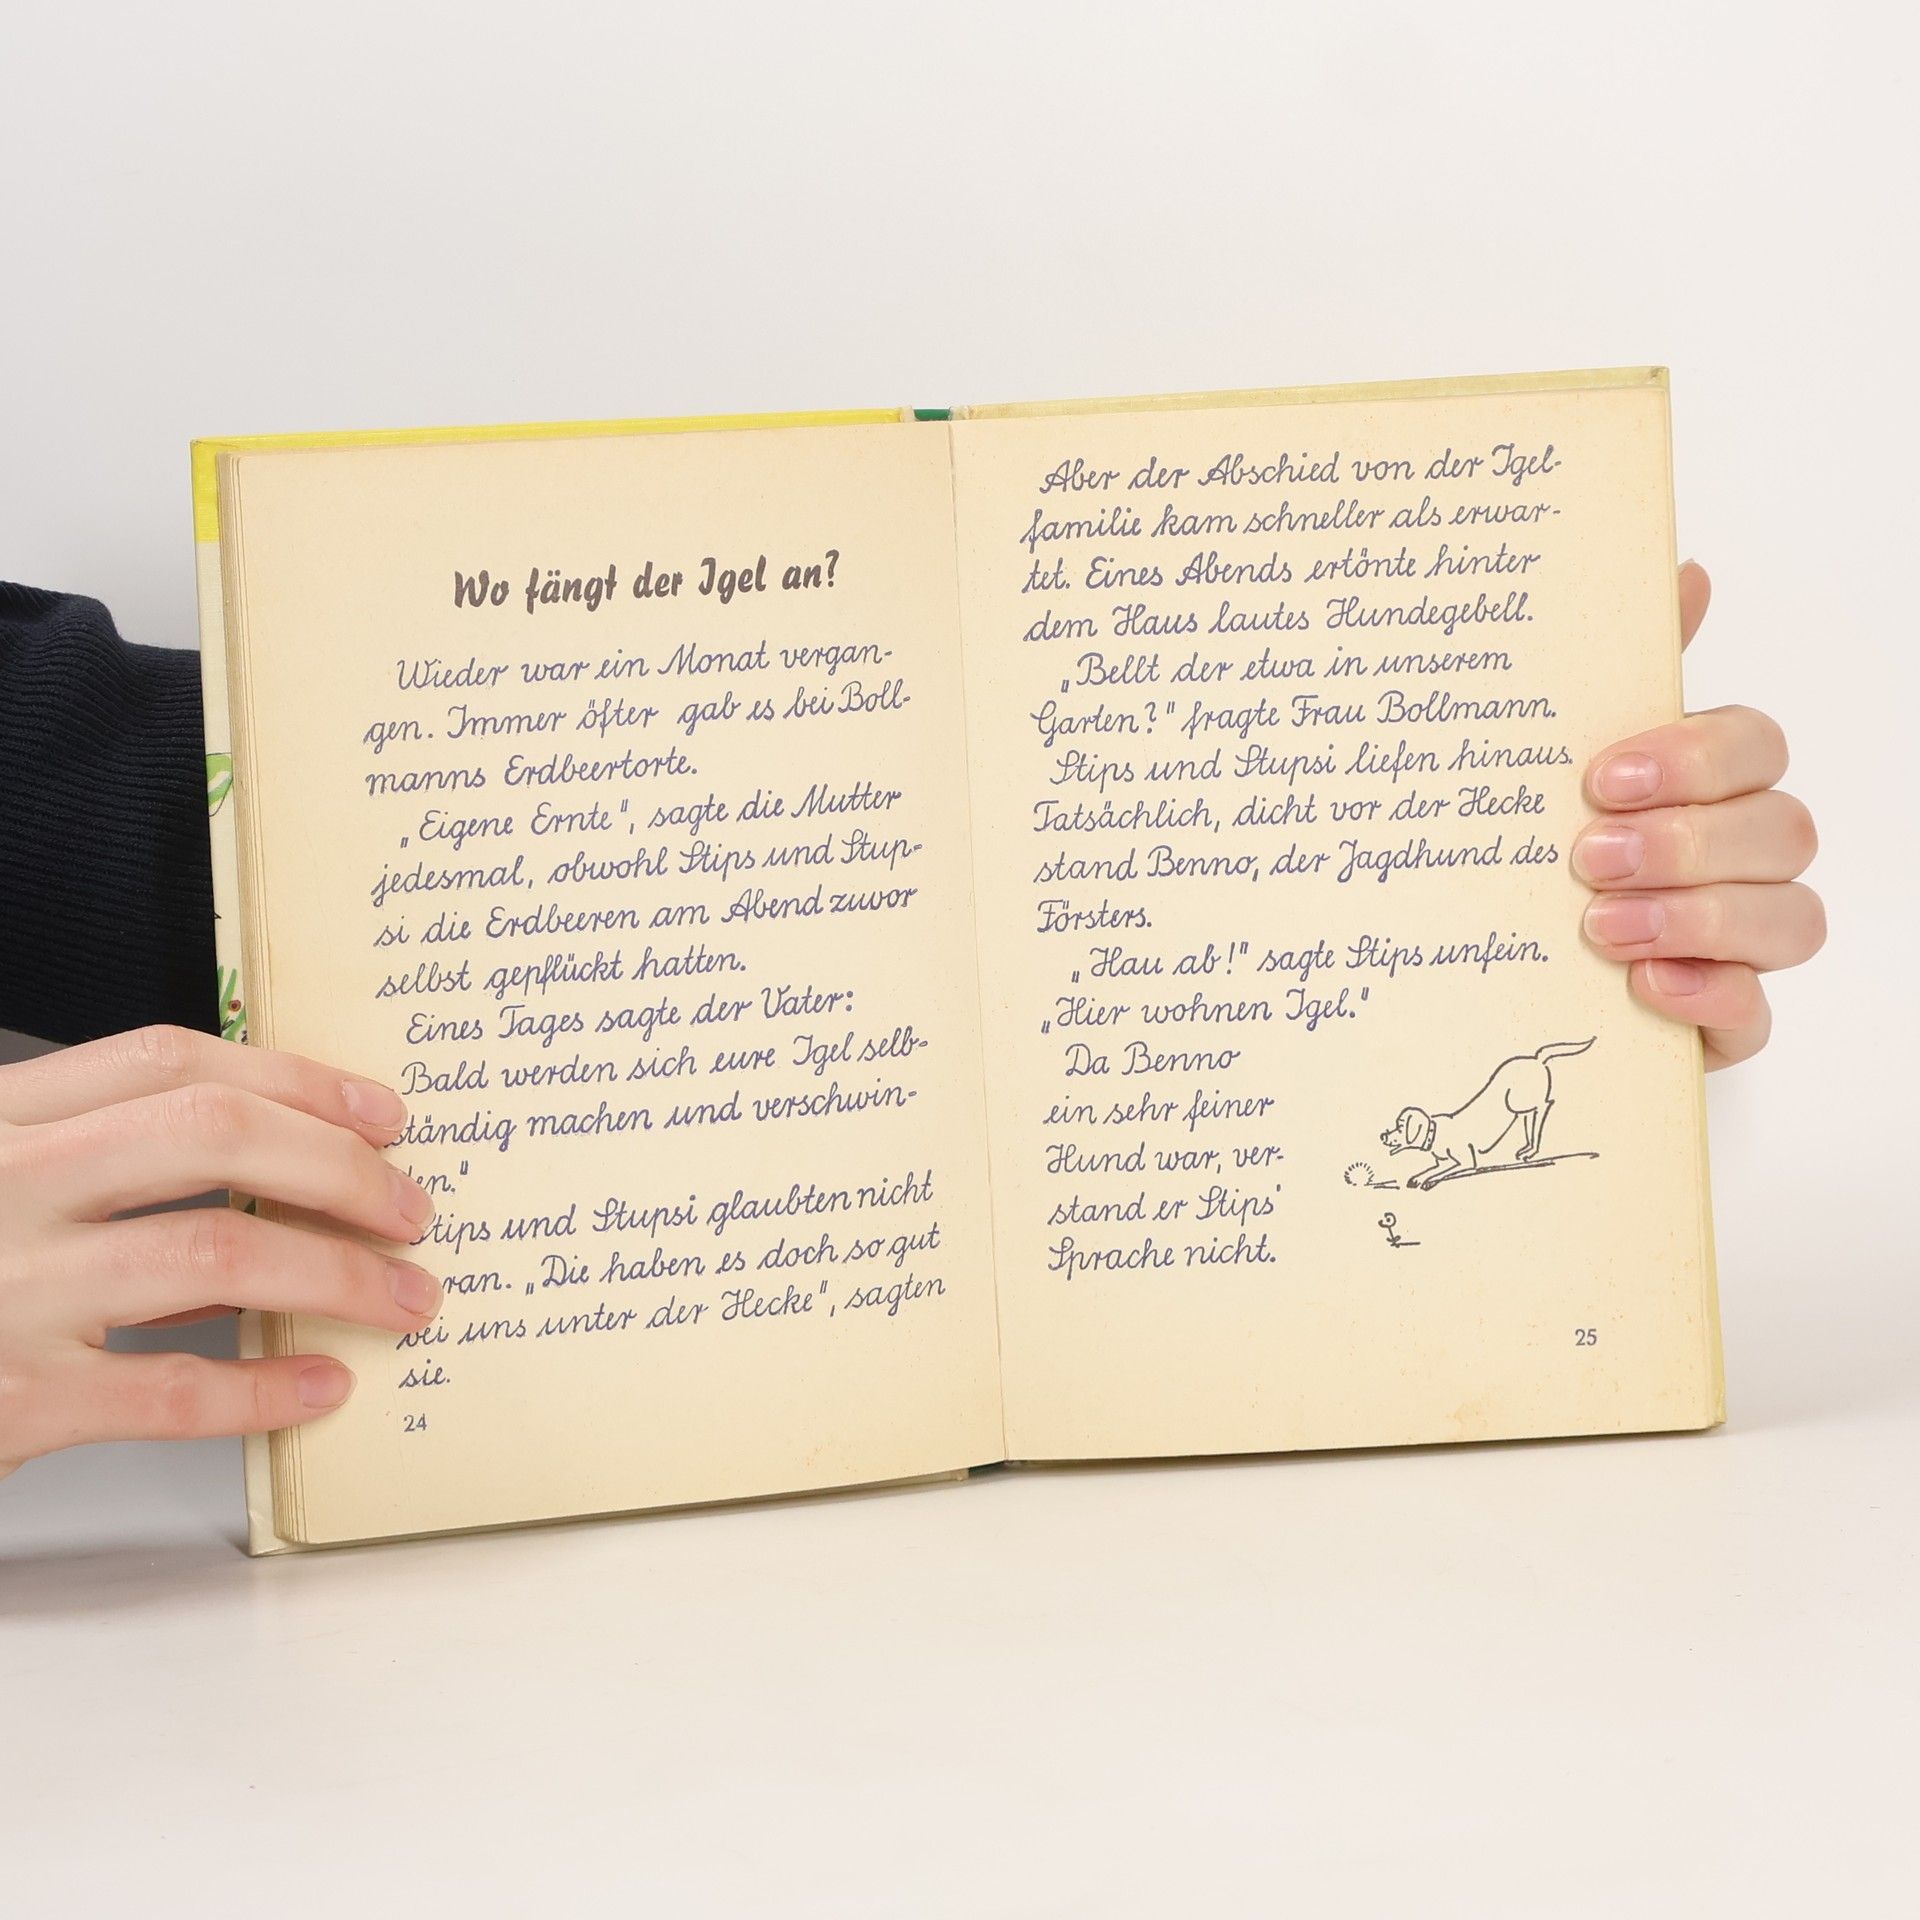 Wo fängt der Igel an?
Wieder war ein Monat vergan-
gen. Immer öfter gab es bei Boll-
manns Erdbeertorte.
„Eigene Ernte", sagte die Mutter
jedesmal, obwohl Stips und Stup-
si die Erdbeeren am Abend zuvor
selbst gepflückt hatten.
Eines Tages sagte der Vater:
Bald werden sich eure Igel selb-
ständig machen und verschwin-
en."
Stips und Stupsi glaubten nicht
ran. „Die haben es doch so gut
bei uns unter der Hecke", sagten
sie.
24
Aber der Abschied von der Igel-
familie kam schneller als erwar-
tet. Eines Abends ertönte hinter
dem Haus lautes Hundegebell.
„Bellt der etwa in unserem
Garten?" fragte Frau Bollmann.
Stips und Stupsi liefen hinaus.
Tatsächlich, dicht vor der Hecke
stand Benno, der Jagdhund des
Försters.
„Hau ab!" sagte Stips unfein.
„Hier wohnen Igel."
Da Benno
ein sehr feiner
Hund war, ver-
stand er Stips'
Sprache nicht.
25